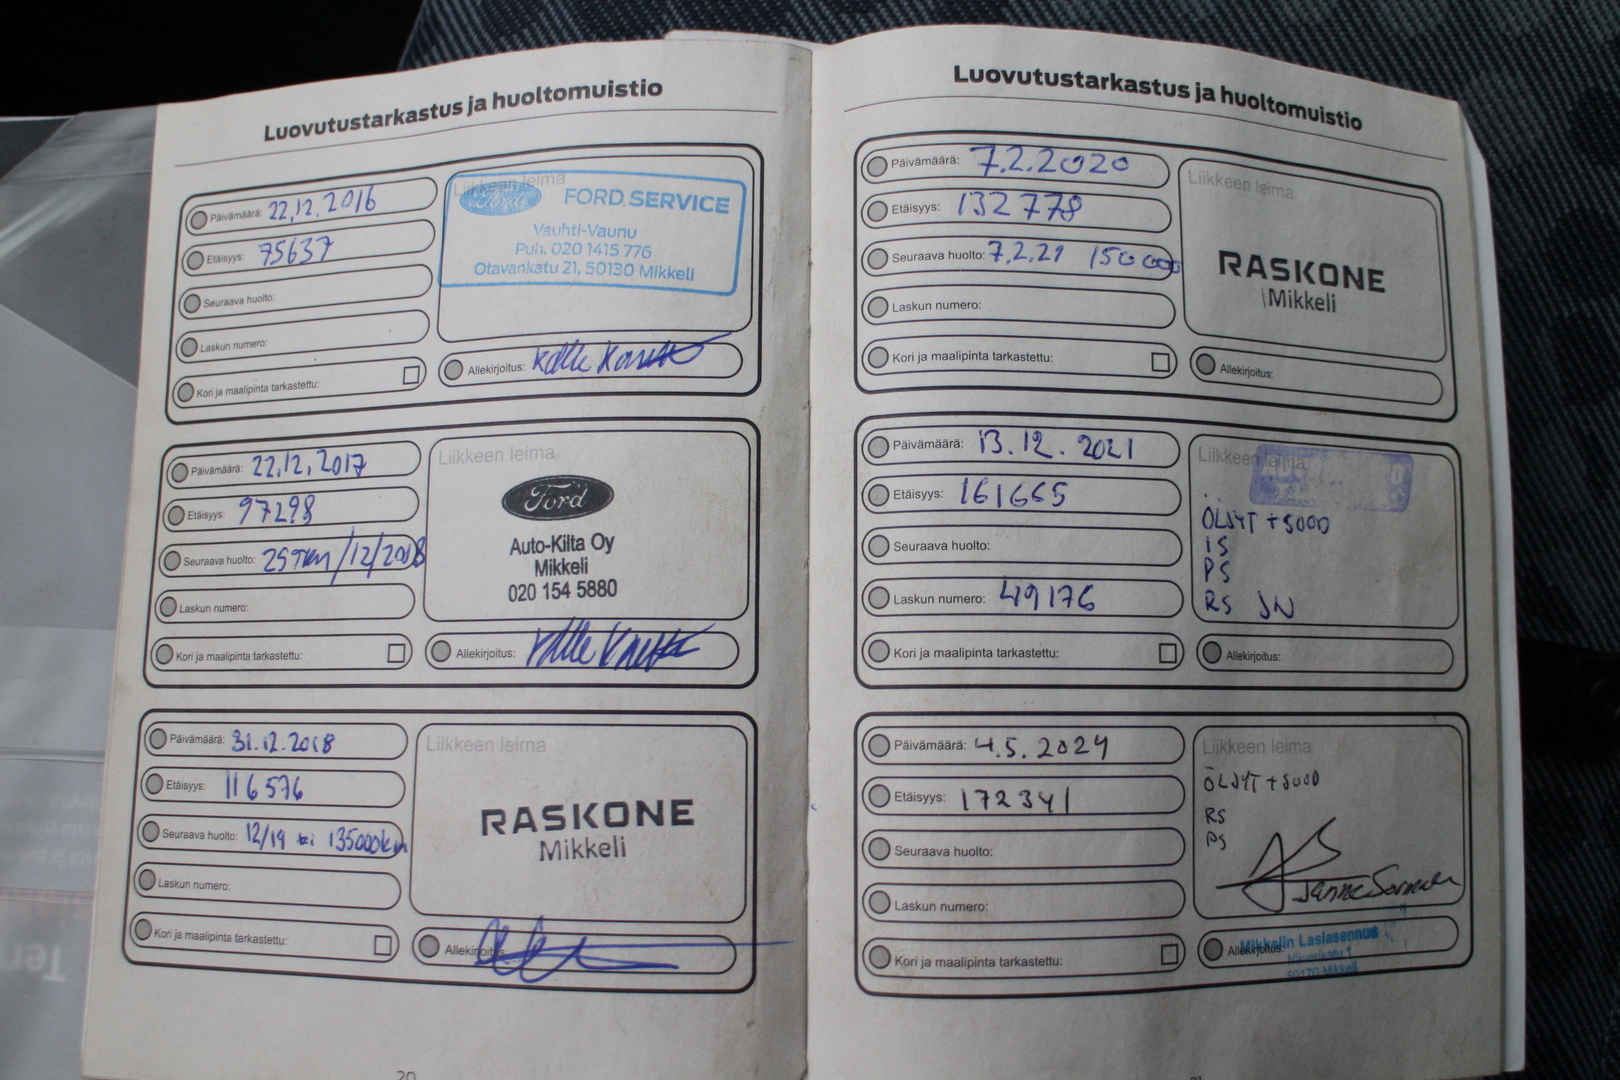 Luovutustarkastus ja huoltomuistio
Päivämäärä: 22.12.2016
Etäisyys: 75637
Seuraava huolto:
Laskun numero:
Kori ja maalipinta tarkastettu:
Liikkeen leima
Ford FORD SERVICE
Vauhti-Vaunu
Puh. 020 1415 776
Otavankatu 21, 50130 Mikkeli
Allekirjoitus:
Päivämäärä: 22.12.2017
Etäisyys: 97298
Seuraava huolto: 25Tkm/12/2018
Laskun numero:
Kori ja maalipinta tarkastettu:
Liikkeen leima
Ford
Auto-Kilta Oy
Mikkeli
020 154 5880
Allekirjoitus:
Päivämäärä: 31.12.2018
Etäisyys: 116576
Seuraava huolto: 12/19 135000km
Laskun numero:
Kori ja maalipinta tarkastettu:
Liikkeen leima
RASKONE
Mikkeli
Allekirjoitus:
20
Luovutustarkastus ja huoltomuistio
Päivämäärä: 7.2.2020
Etäisyys: 132778
Seuraava huolto: 7.2.21 150000
Laskun numero:
Kori ja maalipinta tarkastettu:
Liikkeen leima
RASKONE
Mikkeli
Allekirjoitus:
Päivämäärä: 13.12.2021
Etäisyys: 161665
Seuraava huolto:
Laskun numero: 49176
Kori ja maalipinta tarkastettu:
Liikkeen leima
ÖLJYT + SUOD
IS
PS
RS JN
Allekirjoitus:
Päivämäärä: 4.5.2024
Etäisyys: 172341
Seuraava huolto:
Laskun numero:
Kori ja maalipinta tarkastettu:
Liikkeen leima
ÖLJYT + SUOD
RS
PS
Janne
Allekirjoitus:
Mikkelin Lasiasennus
50170 Mikkeli
21